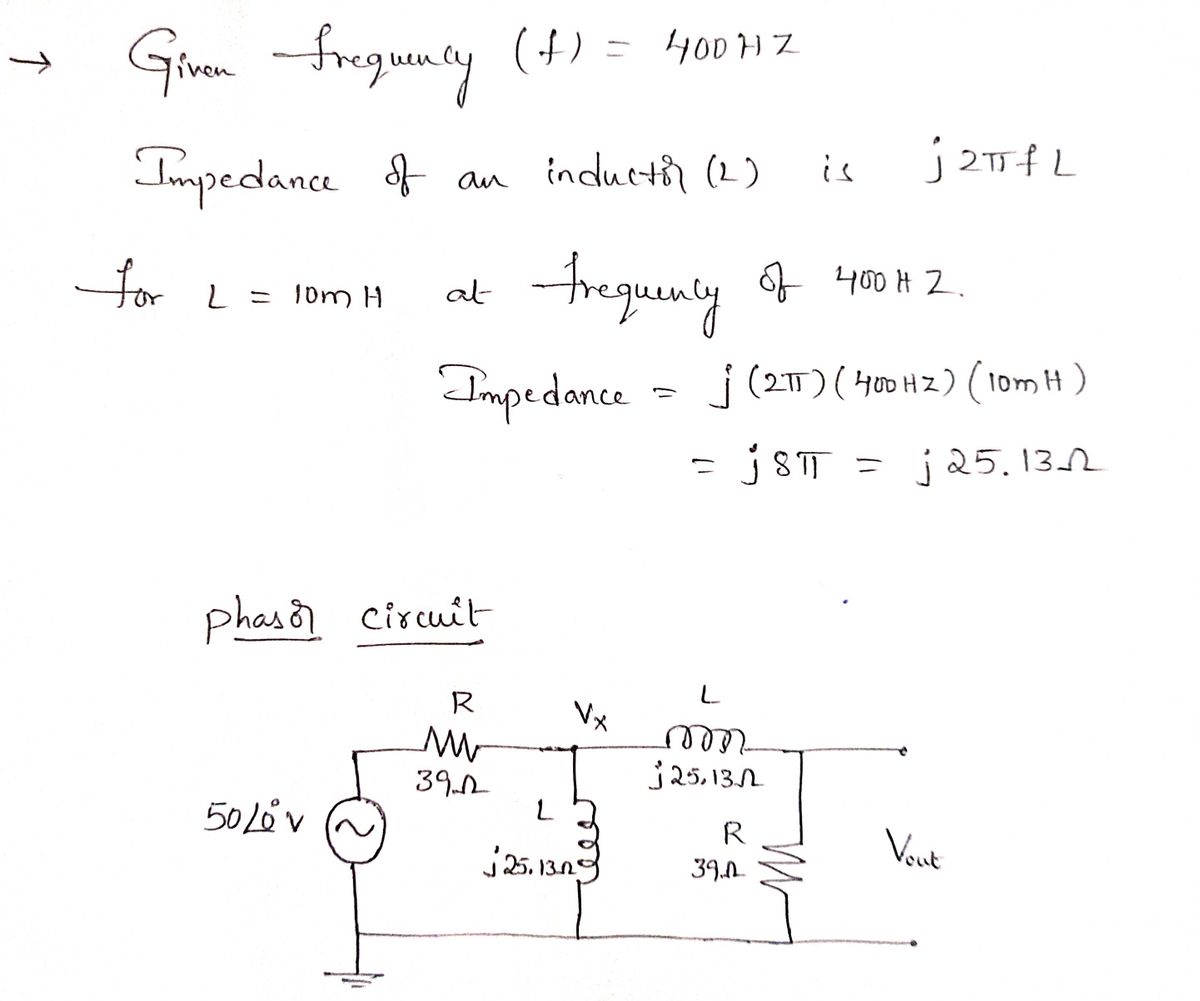 → Given frequency (f) = 400 HZ
Impedance of an inductor (L) is j2πfL
for L = 10mH at frequency of 400 HZ.
Impedance = j (2π) (400 HZ) (10mH)
= j8π = j25.13Ω
phasor circuit
R
Vx
L
39Ω
j25.13Ω
50∠0° V
L
R
j25.13Ω
39Ω
Vout